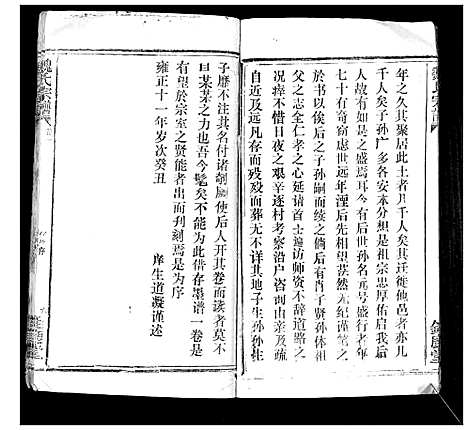 年之久其聚居此土者月千人矣其迁徙他邑者亦几
千人矣子孙广多各安本分想是祖宗忠厚佑启我后
人故有如是之盛焉耳今有后哲欲吾孙名元号盛行者
七十有奇窃虑世远年湮后先相望茫然无纪谨笔之
於图以俟后之子孙嗣而续之倘后有肖子贤孙体祖
父之志全仁孝之心延请首士遍访师资不辞道路之
况瘁不惜日夜之艰辛逐村考察沿户咨询由亲及疏
自近及远凡存而殁殁而葬无不详其地子生孙孙生
子靡不注其名付诸剞劂使后人开其卷而读者莫不
曰某某之力也吾今髦矣不能为此借存墨谱一卷是
有望於宗室之贤能者出而刊刻焉是为序
雍正十一年岁次癸丑
庠生道凝谨述
魏氏宗谱